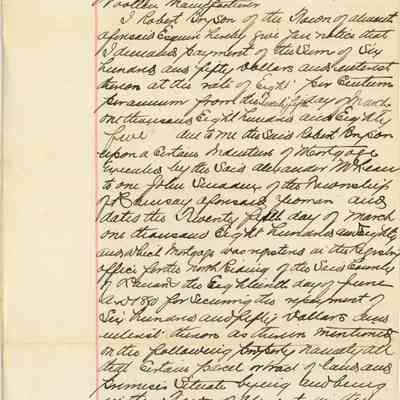 Woollen Manufacturer
I Robert Bryson of the Town of Almonte
aforesaid Esquire hereby give you notice that
I demand payment of the Sum of Six
hundred and fifty Dollars and interest
thereon at the rate of Eight per Centum
per annum from the Twenty fifth day of March
one thousand Eight hundred and Eighty
five due to me the said Robert Bryson
upon a Certain Indenture of Mortgage
Executed by the Said Alexander McLean
to one John of the Township
of Ramsay aforesaid yeoman and
dated the Twenty fifth day of March
one thousand Eight hundred and Eighty
and which Mortgage was registered in the Registry
office for the North Riding of the Said County
of Lanark the Eighteenth day of June
AD 1880 for securing the repayment of
Six hundred and fifty Dollars and
interest thereon as therein mentioned
on the following property namely all
that Certain parcel or tract of land and
premises Situate lying and being
in the Town of